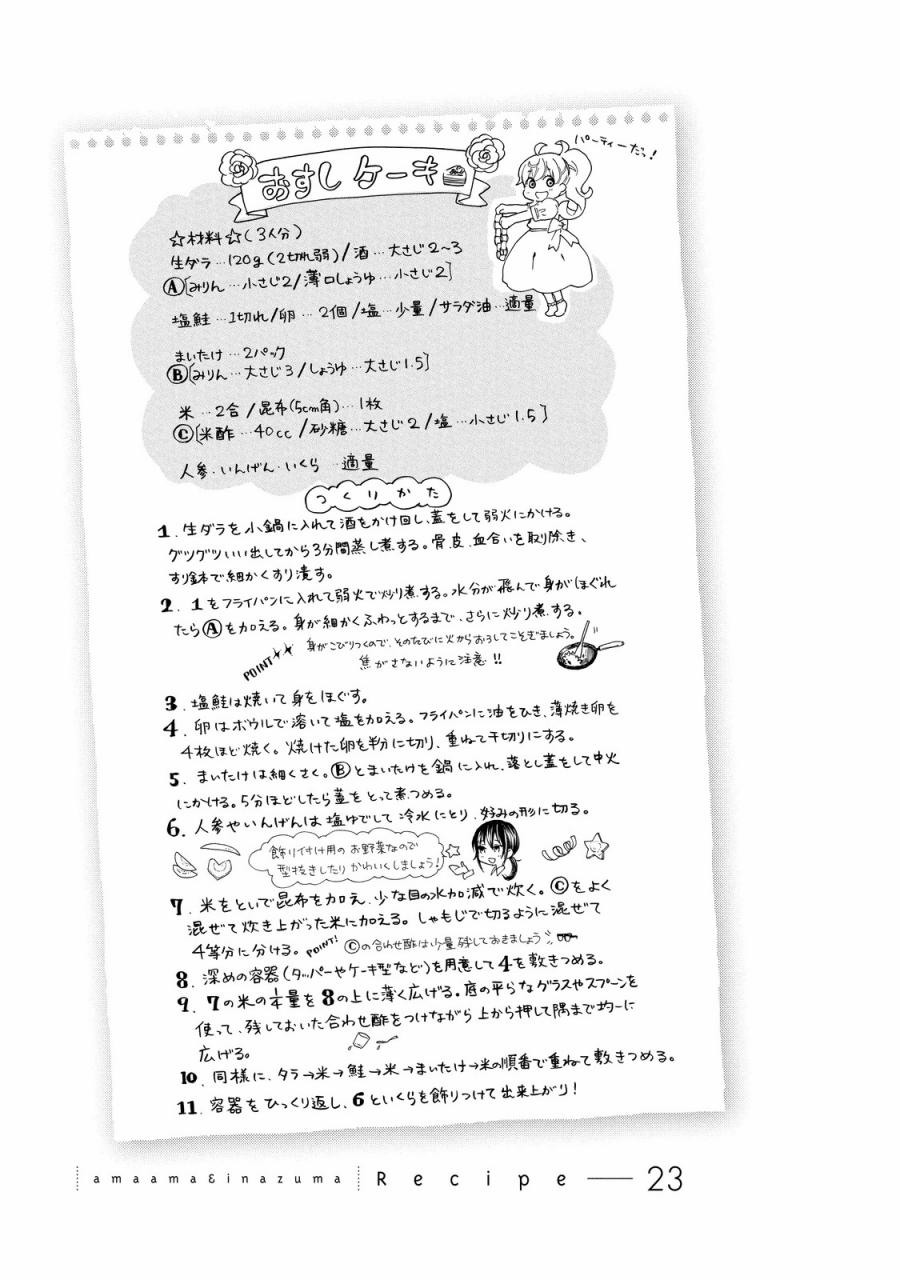 パーティーだっ!
おすしケーキ
☆材料☆(3人分)
生ダラ…120g(2切れ弱)/酒…大さじ2〜3
Ⓐ[みりん…小さじ2/薄口しょうゆ…小さじ2]
塩鮭…1切れ/卵…2個/塩…少量/サラダ油…適量
まいたけ…2パック
Ⓑ[みりん…大さじ3/しょうゆ…大さじ1.5]
米…2合/昆布(5cm角)…1枚
Ⓒ[米酢…40cc/砂糖…大さじ2/塩…小さじ1.5]
人参・いんげん・いくら…適量
つくりかた
1. 生ダラを小鍋に入れて酒をかけ回し、蓋をして弱火にかける。
グツグツいい出してから3分間蒸し煮する。骨、皮、血合いを取り除き、
すり鉢で細かくすり潰す。
2. 1をフライパンに入れて弱火で炒り煮する。水分が飛んで身がほぐれ
たらⒶを加える。身が細かくふわっとするまで、さらに炒り煮する。
POINT 身がこびりつくので、そのたびに火からおろしてこそぎましょう。
焦がさないように注意!!
3. 塩鮭は焼いて身をほぐす。
4. 卵はボウルで溶いて塩を加える。フライパンに油をひき、薄焼き卵を
4枚ほど焼く。焼けた卵を半分に切り、重ねて千切りにする。
5. まいたけは細くさく。Ⓑとまいたけを鍋に入れ、落とし蓋をして中火
にかける。5分ほどしたら蓋をとって煮つめる。
6. 人参やいんげんは塩ゆでして冷水にとり、好みの形に切る。
飾り付け用のお野菜なので
型抜きしたりかわいくしましょう!
7. 米をといで昆布を加え、少な目の水加減で炊く。Ⓒをよく
混ぜて炊き上がった米に加える。しゃもじで切るように混ぜて
4等分に分ける。POINT! Ⓒの合わせ酢は少量残しておきましょう
8. 深めの容器(タッパーやケーキ型など)を用意して4を敷きつめる。
9. 7の米の1/4量を8の上に薄く広げる。底の平らなグラスやスプーンを
使って、残しておいた合わせ酢をつけながら上から押して隅まで均一に
広げる。
10. 同様に、タラ→米→鮭→米→まいたけ→米の順番で重ねて敷きつめる。
11. 容器をひっくり返し、6といくらを飾りつけて出来上がり!
amaama&inazuma Recipe — 23